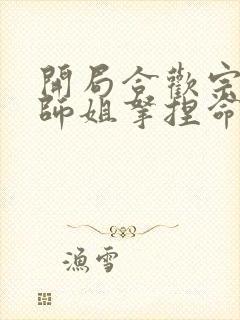 開局合歡宗
師姐拏捏命
漁雪